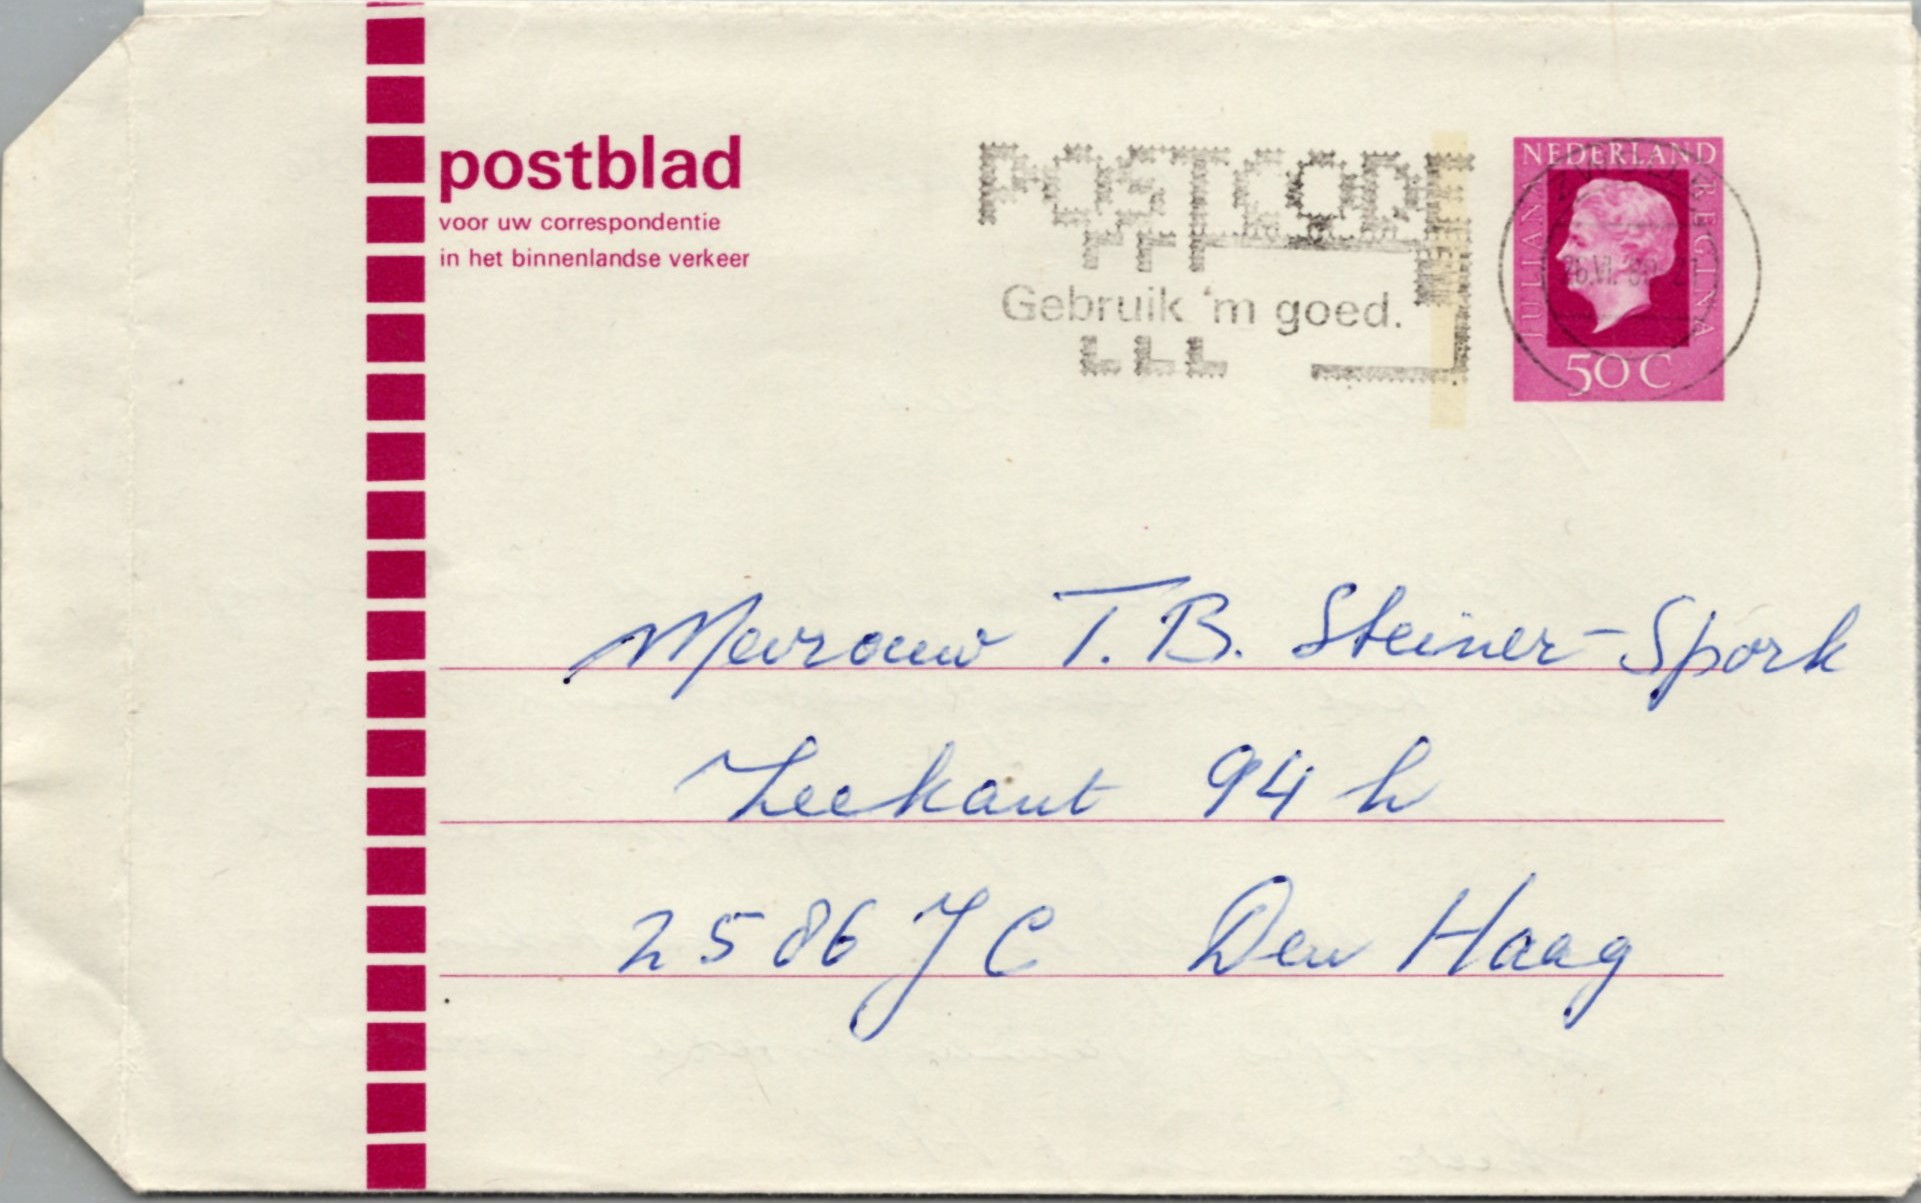 postblad
voor uw correspondentie
in het binnenlandse verkeer
POSTCODE
Gebruik 'm goed.
NEDERLAND
JULIANA REGINA
50 C
Mevrouw T. B. Steiner-Spork
Zeekant 94 h
2586 JC Den Haag